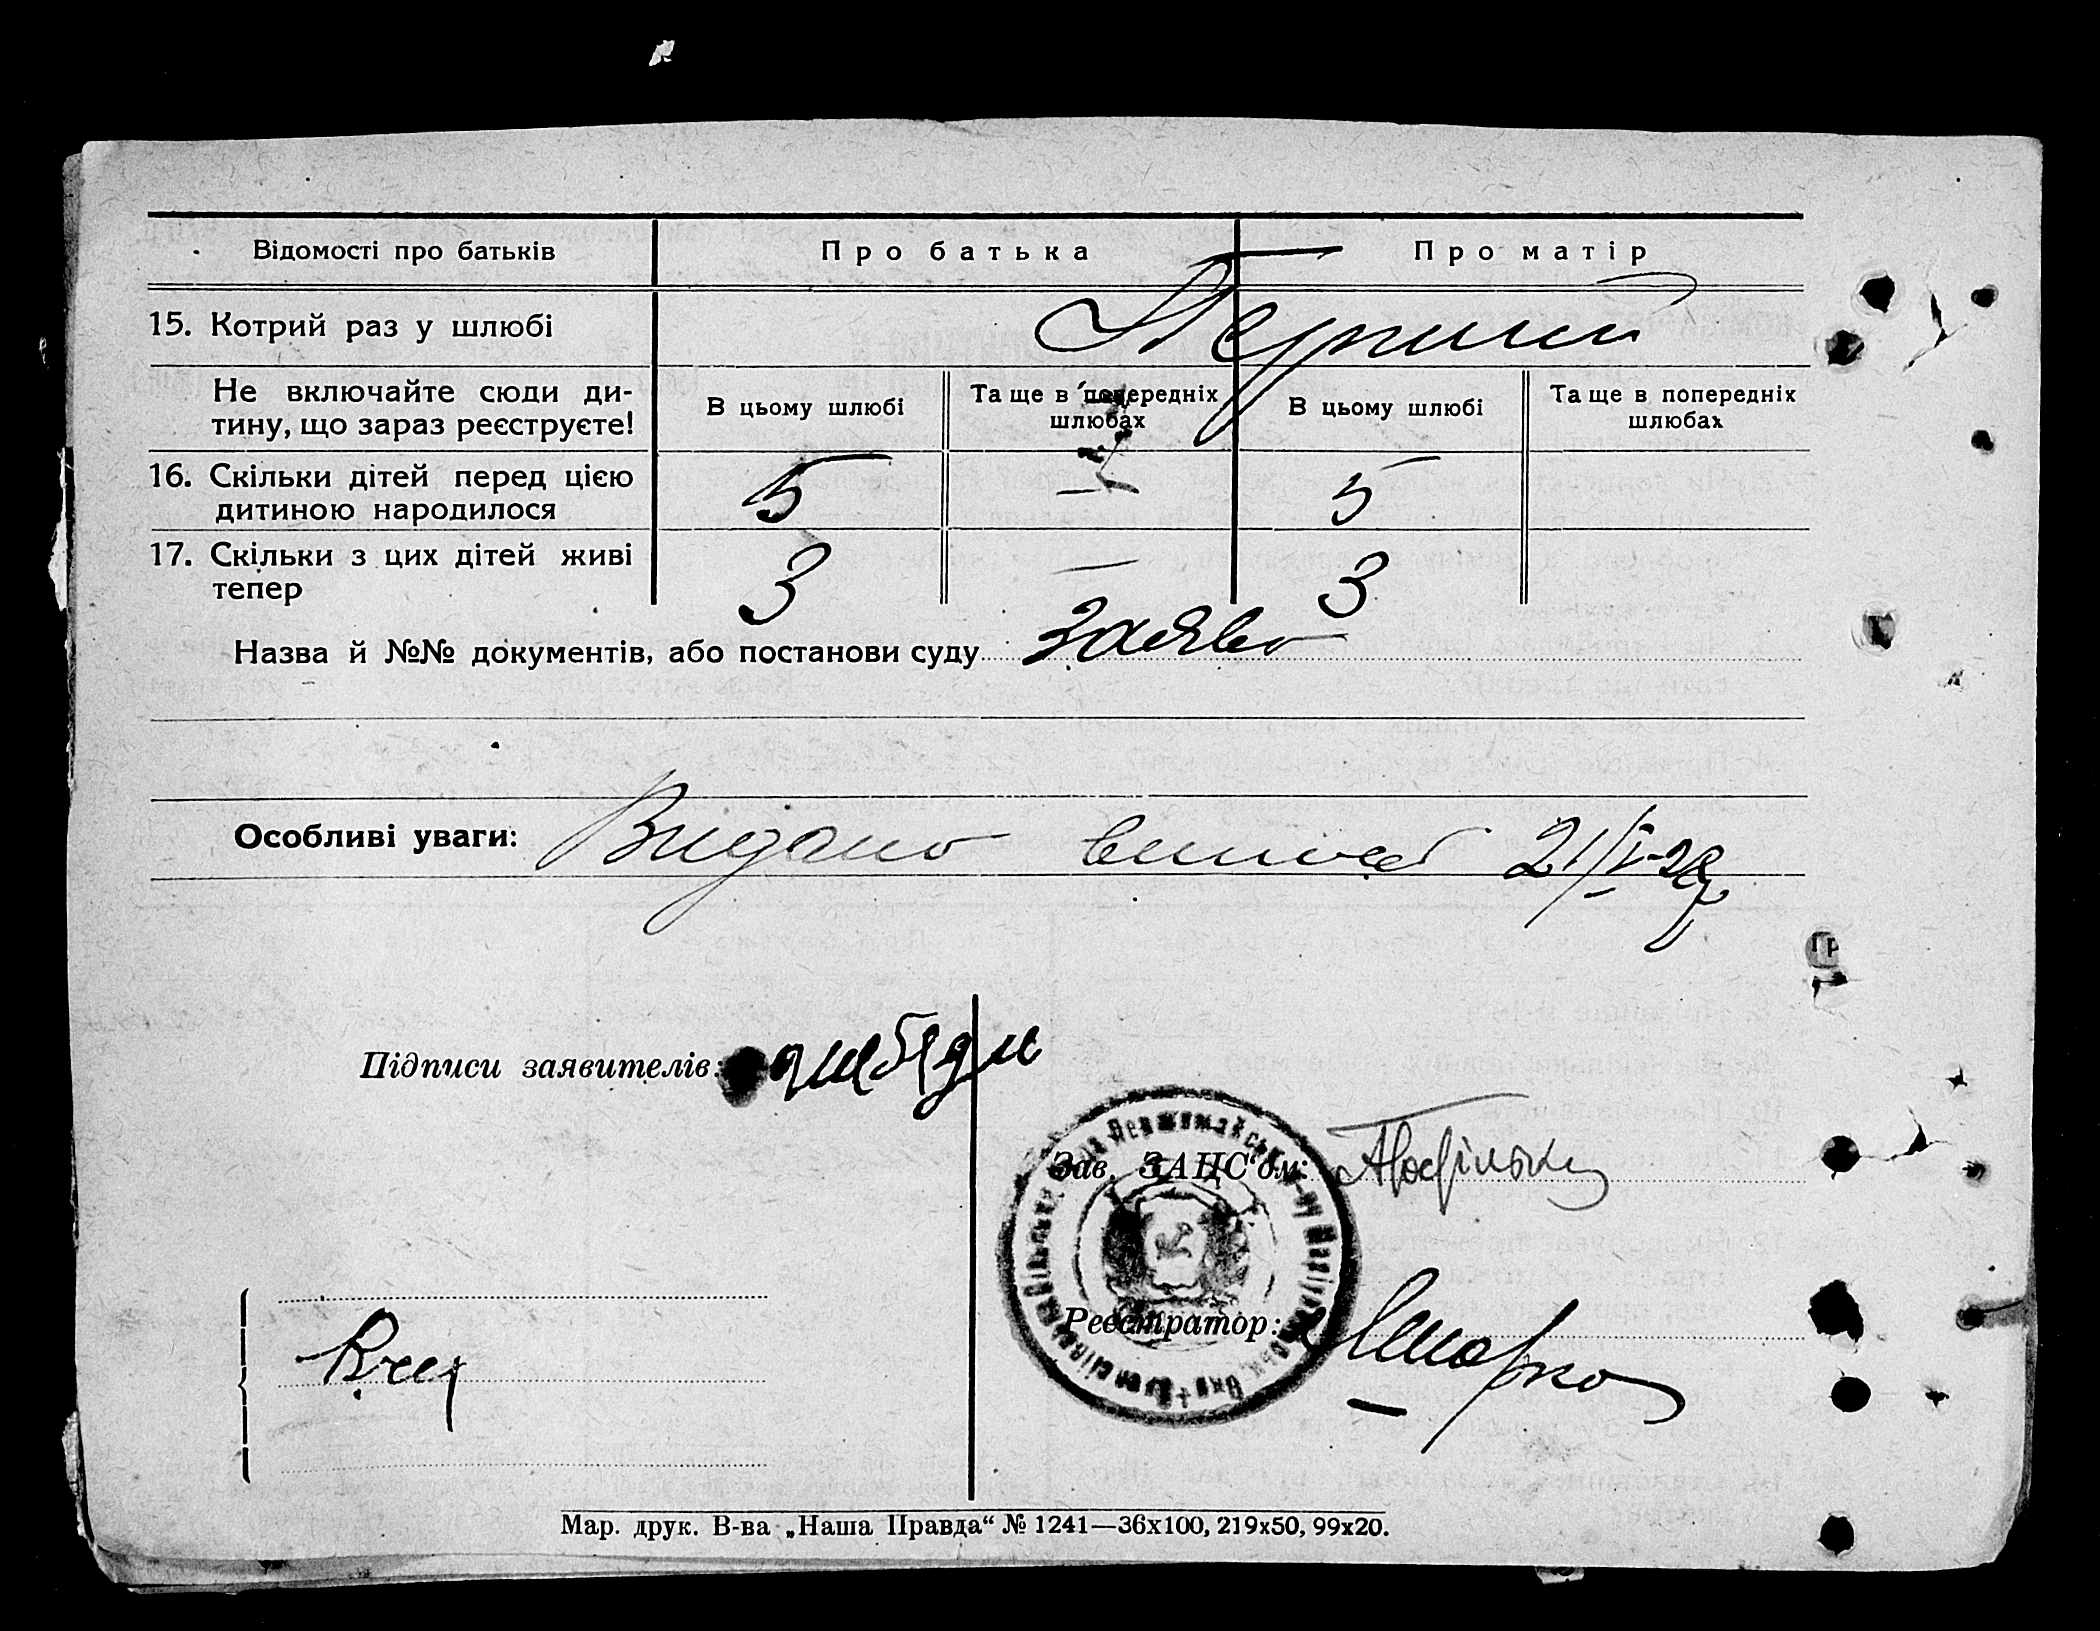 Відомості про батьків Про батька Про матір
15. Котрий раз у шлюбі Перший
Не включайте сюди ди-
тину, що зараз реєструєте!
В цьому шлюбі
Та ще в попередніх
шлюбах
В цьому шлюбі
Та ще в попередніх
шлюбах
16. Скільки дітей перед цією
дитиною народилося
5 — 5
17. Скільки з цих дітей живі
тепер
3 — 3
Назва й №№ документів, або постанови суду Заява
Особливі уваги: Видано 21/I-28р
Підписи заявителів:
Зав. ЗАЦС'ом:
Реєстратор:
Мар. друк. В-ва „Наша Правда“ № 1241—36х100, 219х50, 99х20.